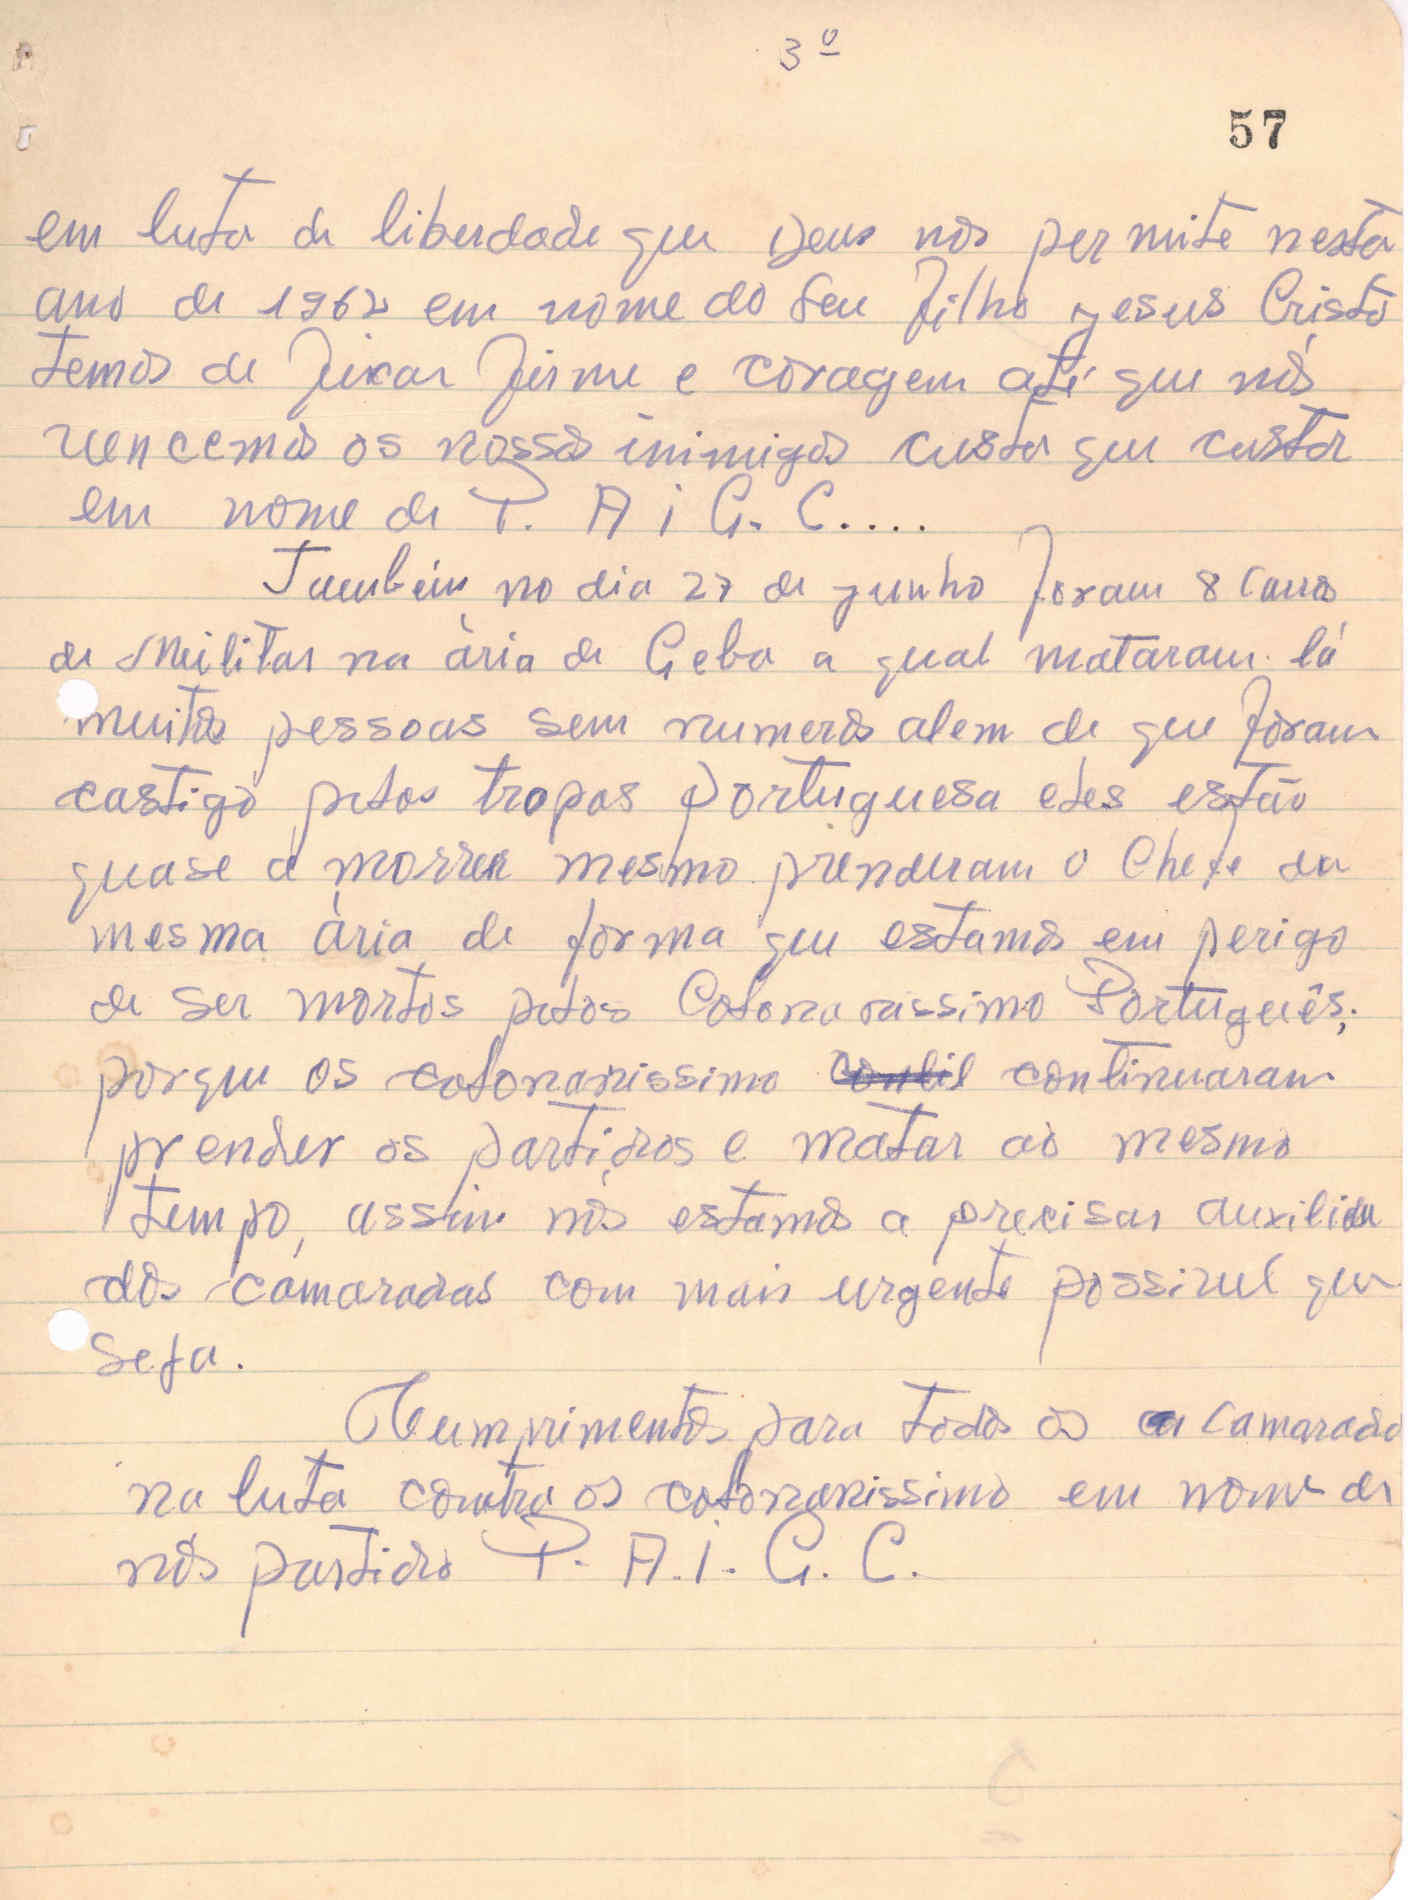 3º
57
em luta de liberdade que Deus nos permite nesta
ano de 1962 em nome do Seu filho Jesus Cristo
temos de fixar firme e coragem até que nós
vencemos os nossos inimigos custa que custar
em nome de P. A i G. C....
Também no dia 27 de junho foram 8 carros
de Militar na ária de Geba a qual mataram lá
muitos pessoas sem numeros alem de que foram
castigo pelos tropas Portuguesa eles estão
quase a morrer mesmo prenderam o Chefe da
mesma ária de forma que estamos em perigo
de ser mortos pelos Colonanissimo Português;
porque os colonanissimo continuaram
prender os partidos e matar ao mesmo
tempo, assim nós estamos a precisar auxilio
dos camaradas com mais urgente possivel que
Seja.
Cumprimentos para todos os camarada
na luta contra os colonanissimo em nome de
nós partido P. A. i. G. C.